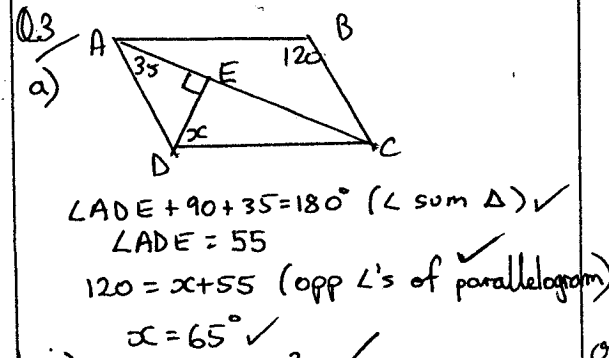 Q3
a)
A
B
35
120
E
x
D
C
∠ADE + 90 + 35 = 180° (∠ sum Δ) ✓
∠ADE = 55
120 = x + 55 (opp ∠'s of parallelogram) ✓
x = 65° ✓